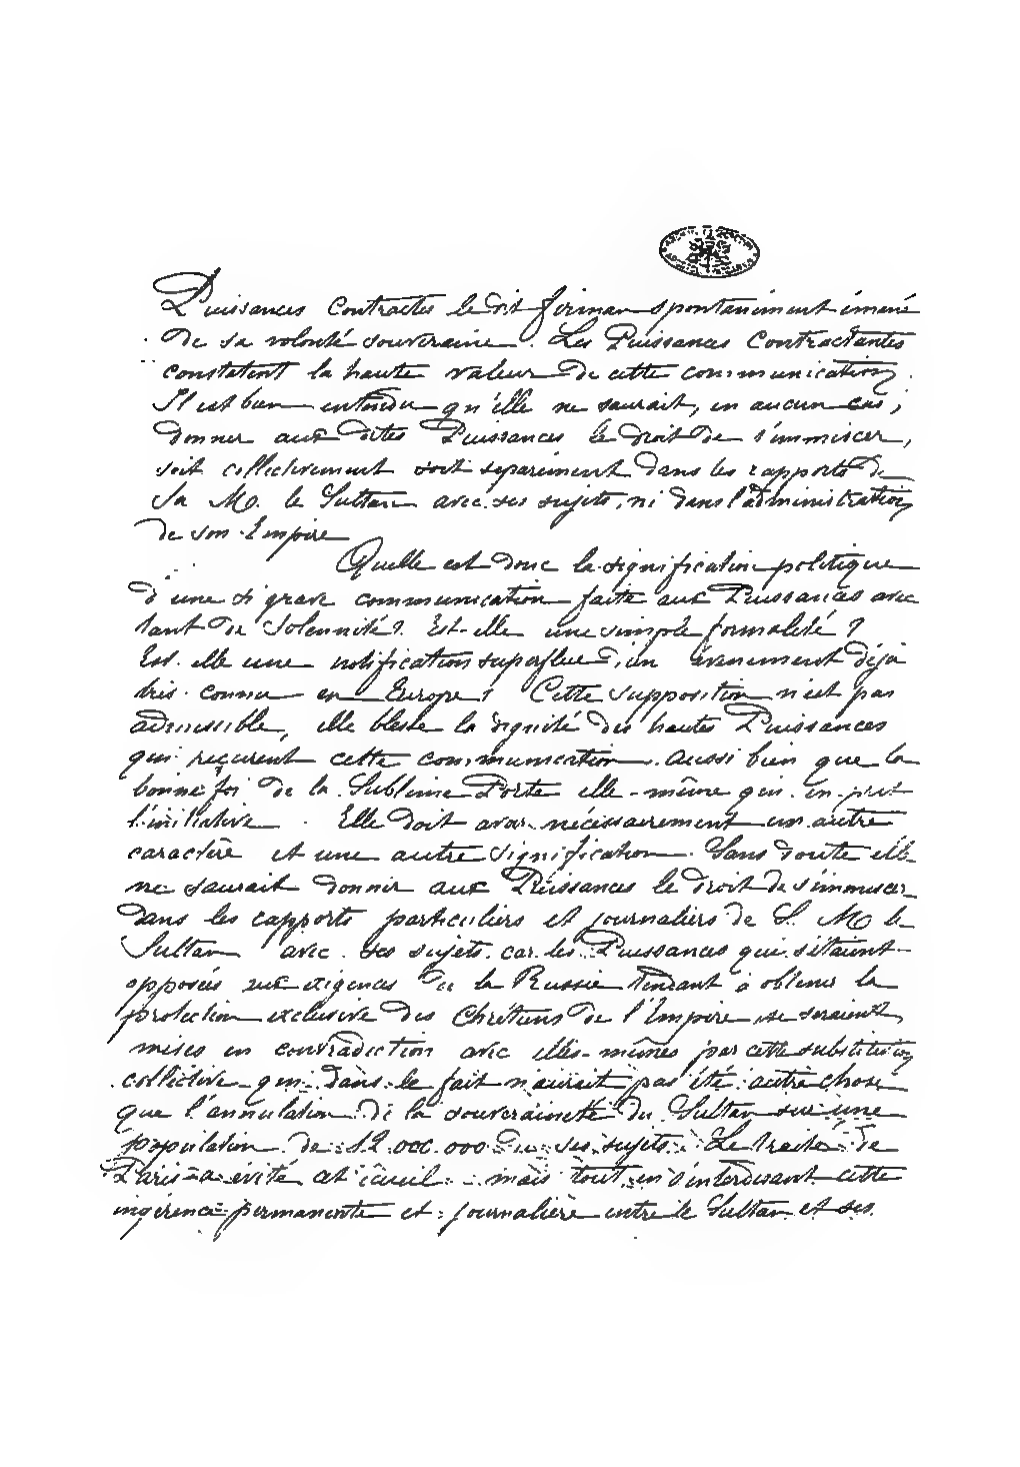 Puissances Contractes le dit firman spontanément émané
de sa volonté souveraine. Les Puissances Contractantes
constatent la haute valeur de cette communication.
Il est bien entendu qu'elle ne saurait, en aucun cas,
donner aux dites Puissances le droit de s'immiscer,
soit collectivement soit séparément dans les rapports de
Sa M. le Sultan avec ses sujets, ni dans l'administration
de son Empire
Quelle est donc la signification politique
d'une si grave communication faite aux Puissances avec
tant de Solennité? Est-elle une simple formalité?
Est-elle une notification superflue d'un évenement déjà
très connu en Europe? Cette supposition n'est pas
admissible, elle blesse la dignité des hautes Puissances
qui reçurent cette communication aussi bien que la
bonne foi de la Sublime Porte elle-même qui en prit
l'initiative. Elle doit avoir nécessairement un autre
caractère et une autre signification. Sans doute elle
ne saurait donner aux Puissances le droit de s'immiscer
dans les rapports particuliers et journaliers de S. M. le
Sultan avec ses sujets car les Puissances qui s'étaient
opposées aux exigences de la Russie tendant à obtenir la
protection exclusive des Chrétiens de l'Empire, se seraient
mises en contradiction avec elles-mêmes par cette substitution
collective qui dans le fait n'aurait pas été autre chose
que l'annulation de la souveraineté du Sultan sur une
population de 12.000.000 de ses sujets. Le traité de
Paris a évité cet écueil mais tout en s'interdisant cette
ingérence permanente et journalière entre le Sultan et ses